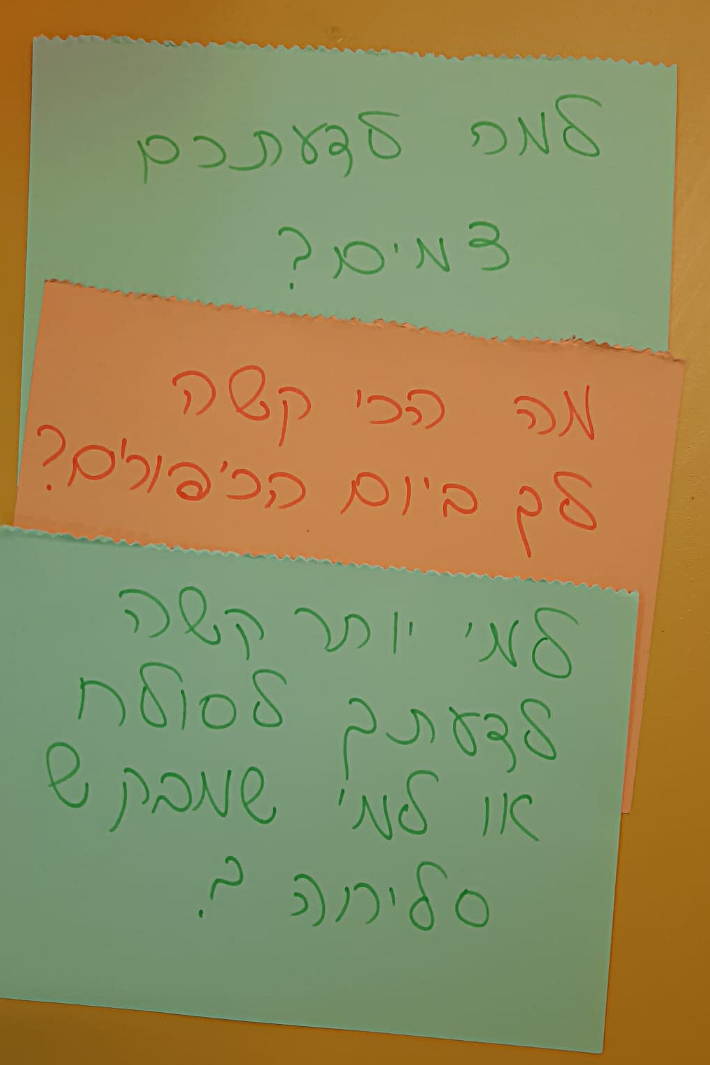 למה לדעתכם
צמים?
מה הכי קשה
לך ביום הכיפורים?
למי יותר קשה
לדעתך לסולח
או למי שמבקש
סליחה ?